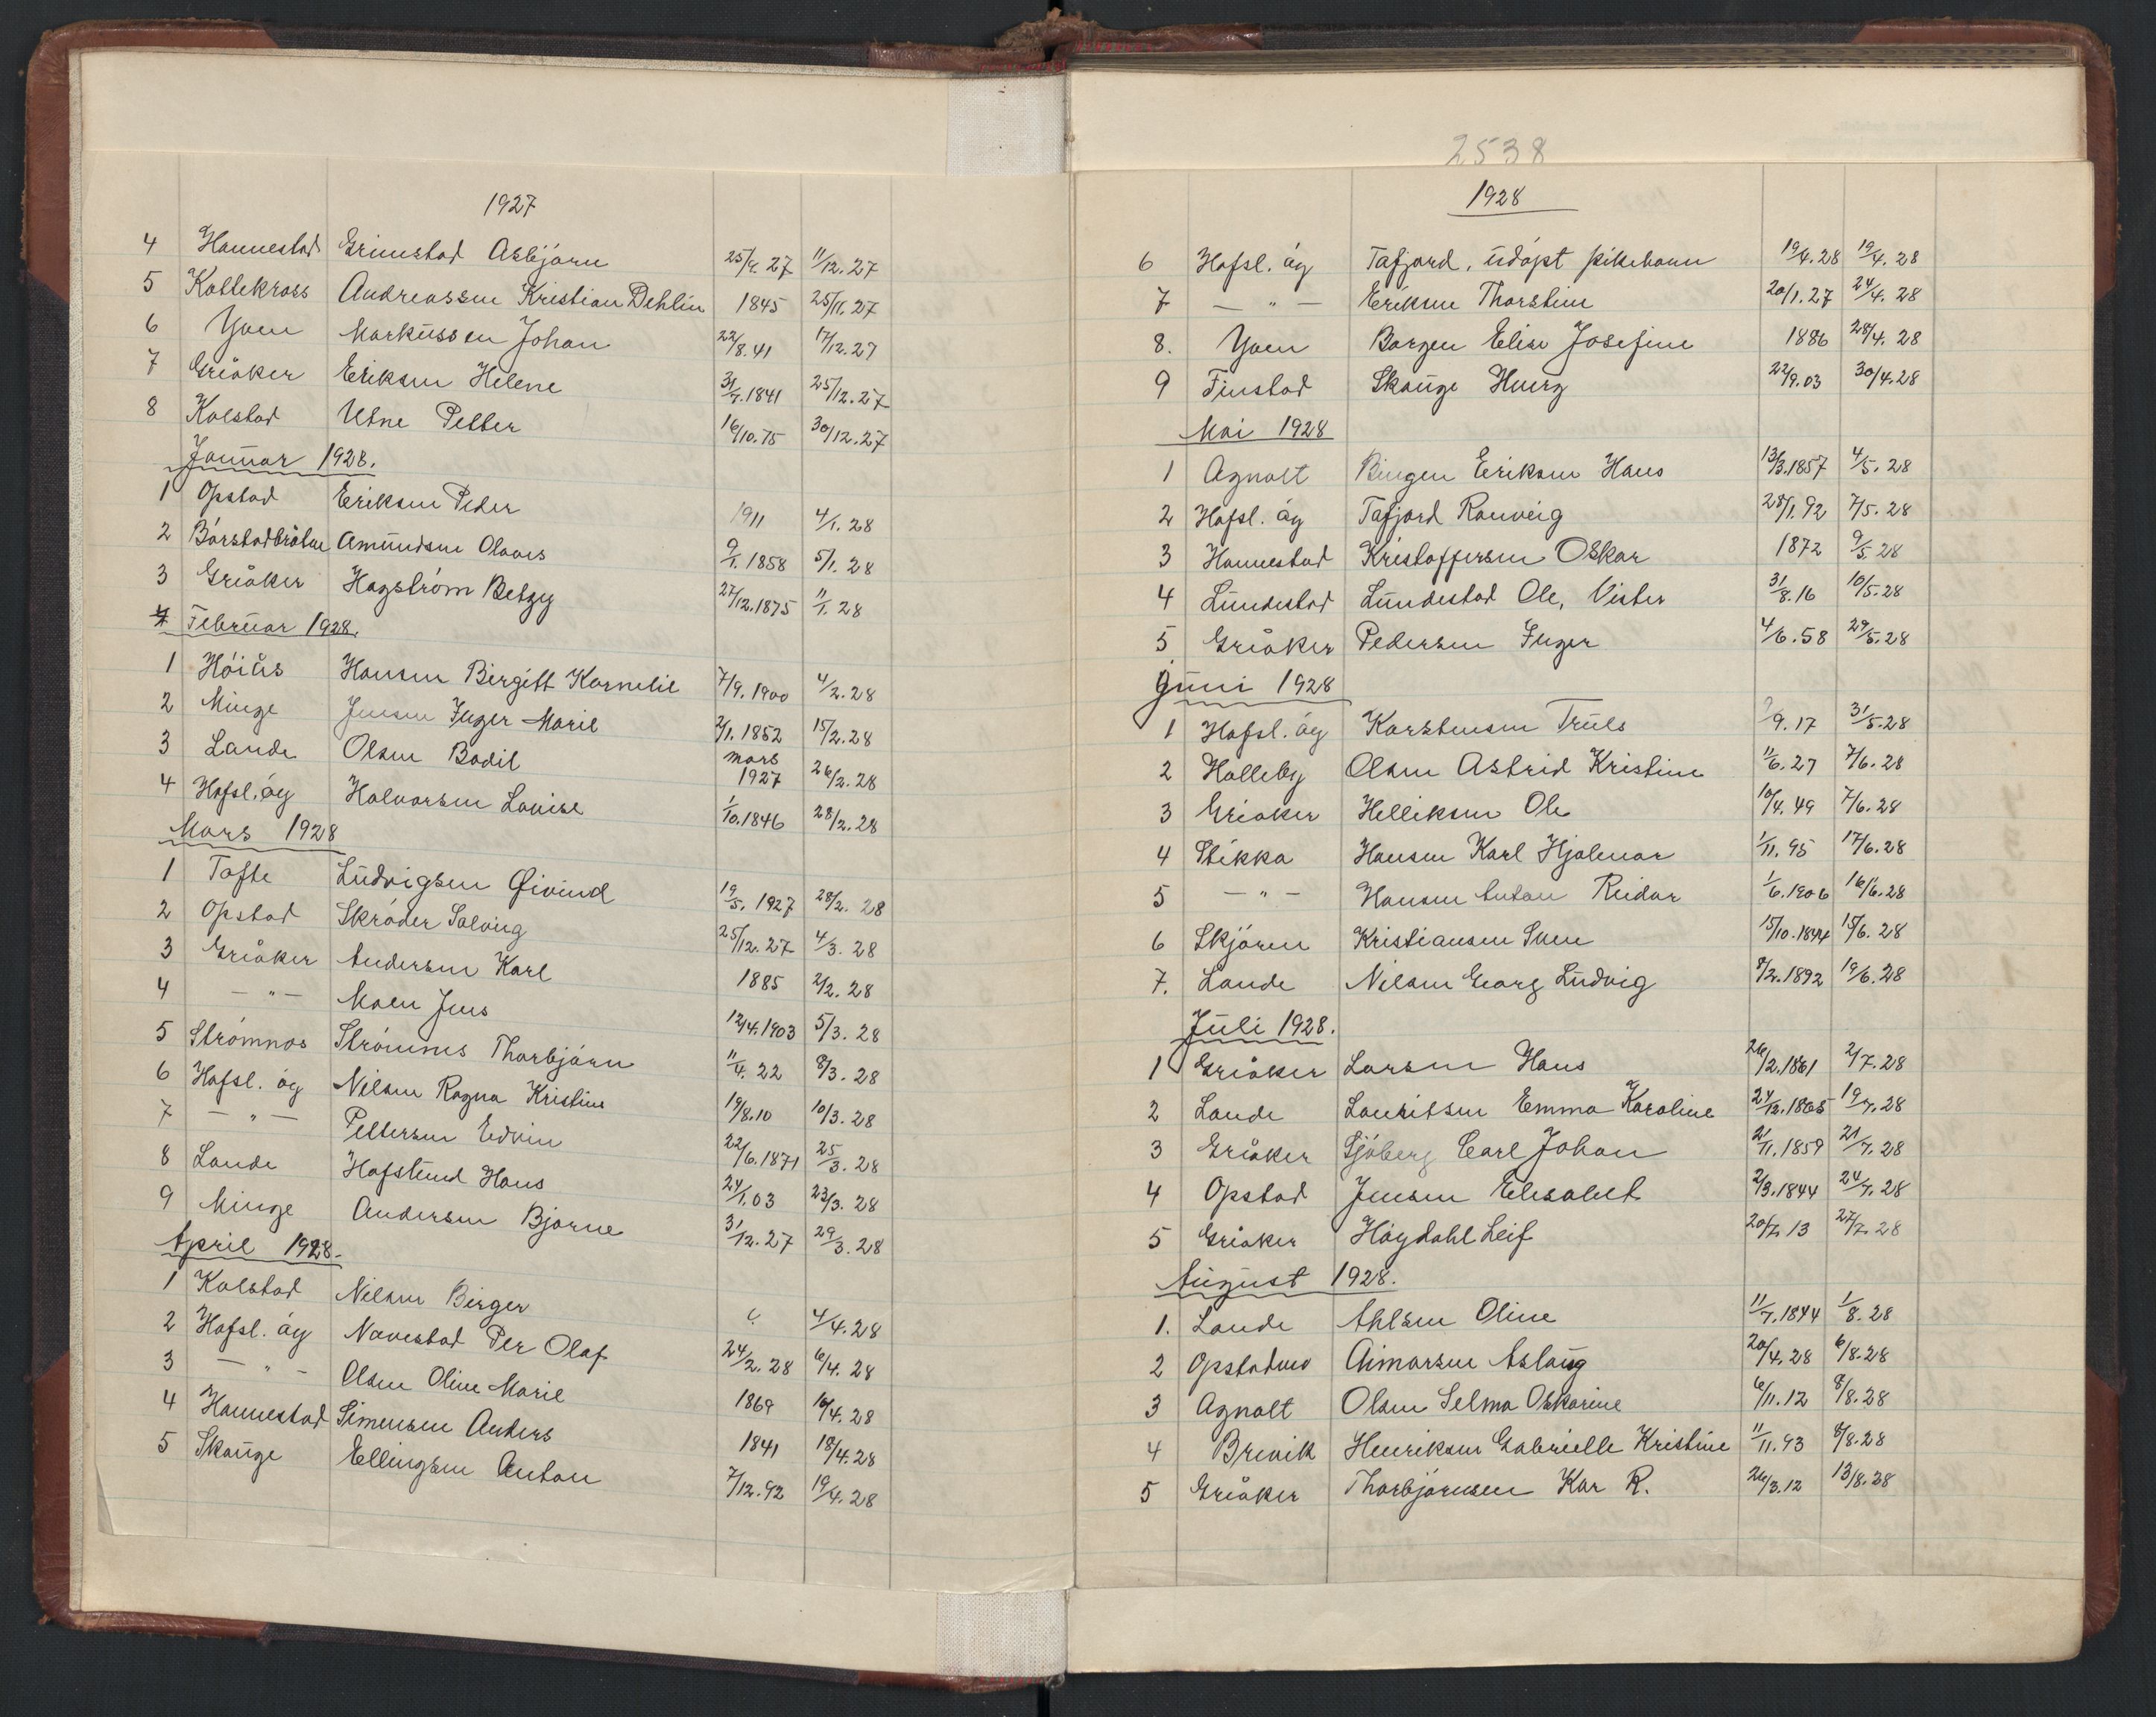 1927
4 Hannestad Grimstad Asbjørn 25/9. 27 11/12. 27
5 Kallekross Andreassen Kristian Dehlin 1845 25/11. 27
6 Yven Markussen Johan 22/8. 41 17/12. 27
7 Greåker Eriksen Helene 31/7. 1841 25/12. 27
8 Kolstad Utne Petter 16/10. 75 30/12. 27
Januar 1928.
1 Opstad Eriksen Peder 1911 4/1. 28
2 Børstadbråten Amundsen Olaves 9/1. 1858 5/1. 28
3 Greåker Hagstrøm Betzy 27/12. 1875 11/1. 28
Februar 1928.
1 Høiås Hansen Birgitt Kornelie 7/9. 1900 4/2. 28
2 Minge Jensen Inger Marie 2/1. 1852 15/2. 28
3 Lande Olsen Bodil mars 1927 26/2. 28
4 Hafsl. óg Halvorsen Lovise 1/10. 1846 28/2. 28
Mars 1928
1 Tofte Ludvigsen Øivind 19/5. 1927 28/2. 28
2 Opstad Skrøder Solveig 25/12. 27 4/3. 28
3 Greåker Andersen Karl 1885 2/2. 28
4 — " — Moen Jens 12/4. 1903 5/3. 28
5 Strømnes Strømnes Thorbjørn 11/4. 22 8/3. 28
6 Hafsl. óg Nilsen Ragna Kristine 19/8. 10 10/3. 28
7 — " — Pettersen Edvin 22/6. 1871 25/3. 28
8 Lande Hafslund Hans 24/1. 03 23/3. 28
9 Minge Andersen Bjarne 31/12. 27 29/3. 28
April 1928.
1 Kolstad Nilsen Birger 4/4. 28
2 Hafsl. óg Navestad Per Olaf 24/2. 28 6/4. 28
3 — " — Olsen Oline Marie 1869 16/4. 28
4 Hannestad Simensen Anders 1841 18/4. 28
5 Skauge Ellingsen Anton 7/12. 92 19/4. 28
2538
1928
6 Hafsl. óg Tafjord, udøpt pikebarn 19/4. 28 19/4. 28
7 — " — Eriksen Thorstein 20/1. 27 24/4. 28
8. Yven Borgen Elise Josefine 1886 28/4. 28
9 Finstad Skauge Huerg 22/9. 03 30/4. 28
Mai 1928
1 Agnalt Bingen Eriksen Hans 13/3. 1857 4/5. 28
2 Hafsl. óg Tafjord Ranveig 28/1. 92 7/5. 28
3 Hannestad Kristoffersen Oskar 1872 9/5. 28
4 Lundestad Lundestad Ole, Vister 31/8. 16 10/5. 28
5 Greåker Pedersen Inger 4/6. 58 29/5. 28
Juni 1928
1 Hafsl. óg Karstensen Truls ?/9. 17 31/5. 28
2 Halleby Olsen Astrid Kristine 11/6. 27 7/6. 28
3 Greåker Helliksen Ole 10/4. 49 7/6. 28
4 Stikka Hansen Karl Hjalmar 1/11. 95 17/6. 28
5 — " — Hansen Anton Reidar 1/6. 1906 16/6. 28
6 Skjøren Kristiansen Sven 15/10. 1844 15/6. 28
7. Lande Nilsen Georg Ludvig 8/2. 1892 19/6. 28
Juli 1928.
1 Greåker Larsen Hans 26/2. 1861 2/7. 28
2 Lande Lauritsen Emma Karoline 24/12. 1865 19/7. 28
3 Greåker Sjøberg Carl Johan 2/11. 1859 21/7. 28
4 Opstad Jensen Elisabet 2/3. 1844 24/7. 28
5 Greåker Høydahl Leif 20/7. 13 27/7. 28
August 1928.
1. Lande Ahlsen Oline 11/7. 1844 1/8. 28
2 Opstadmo Aimarsen Aslaug 20/4. 28 6/8. 28
3 Agnalt Olsen Selma Oskarine 6/11. 12 8/8. 28
4 Brevik Henriksen Gabrielle Kristine 11/11. 93 8/8. 28
5 Greåker Thorbjørnsen Kar R. 26/3. 12 13/8. 28